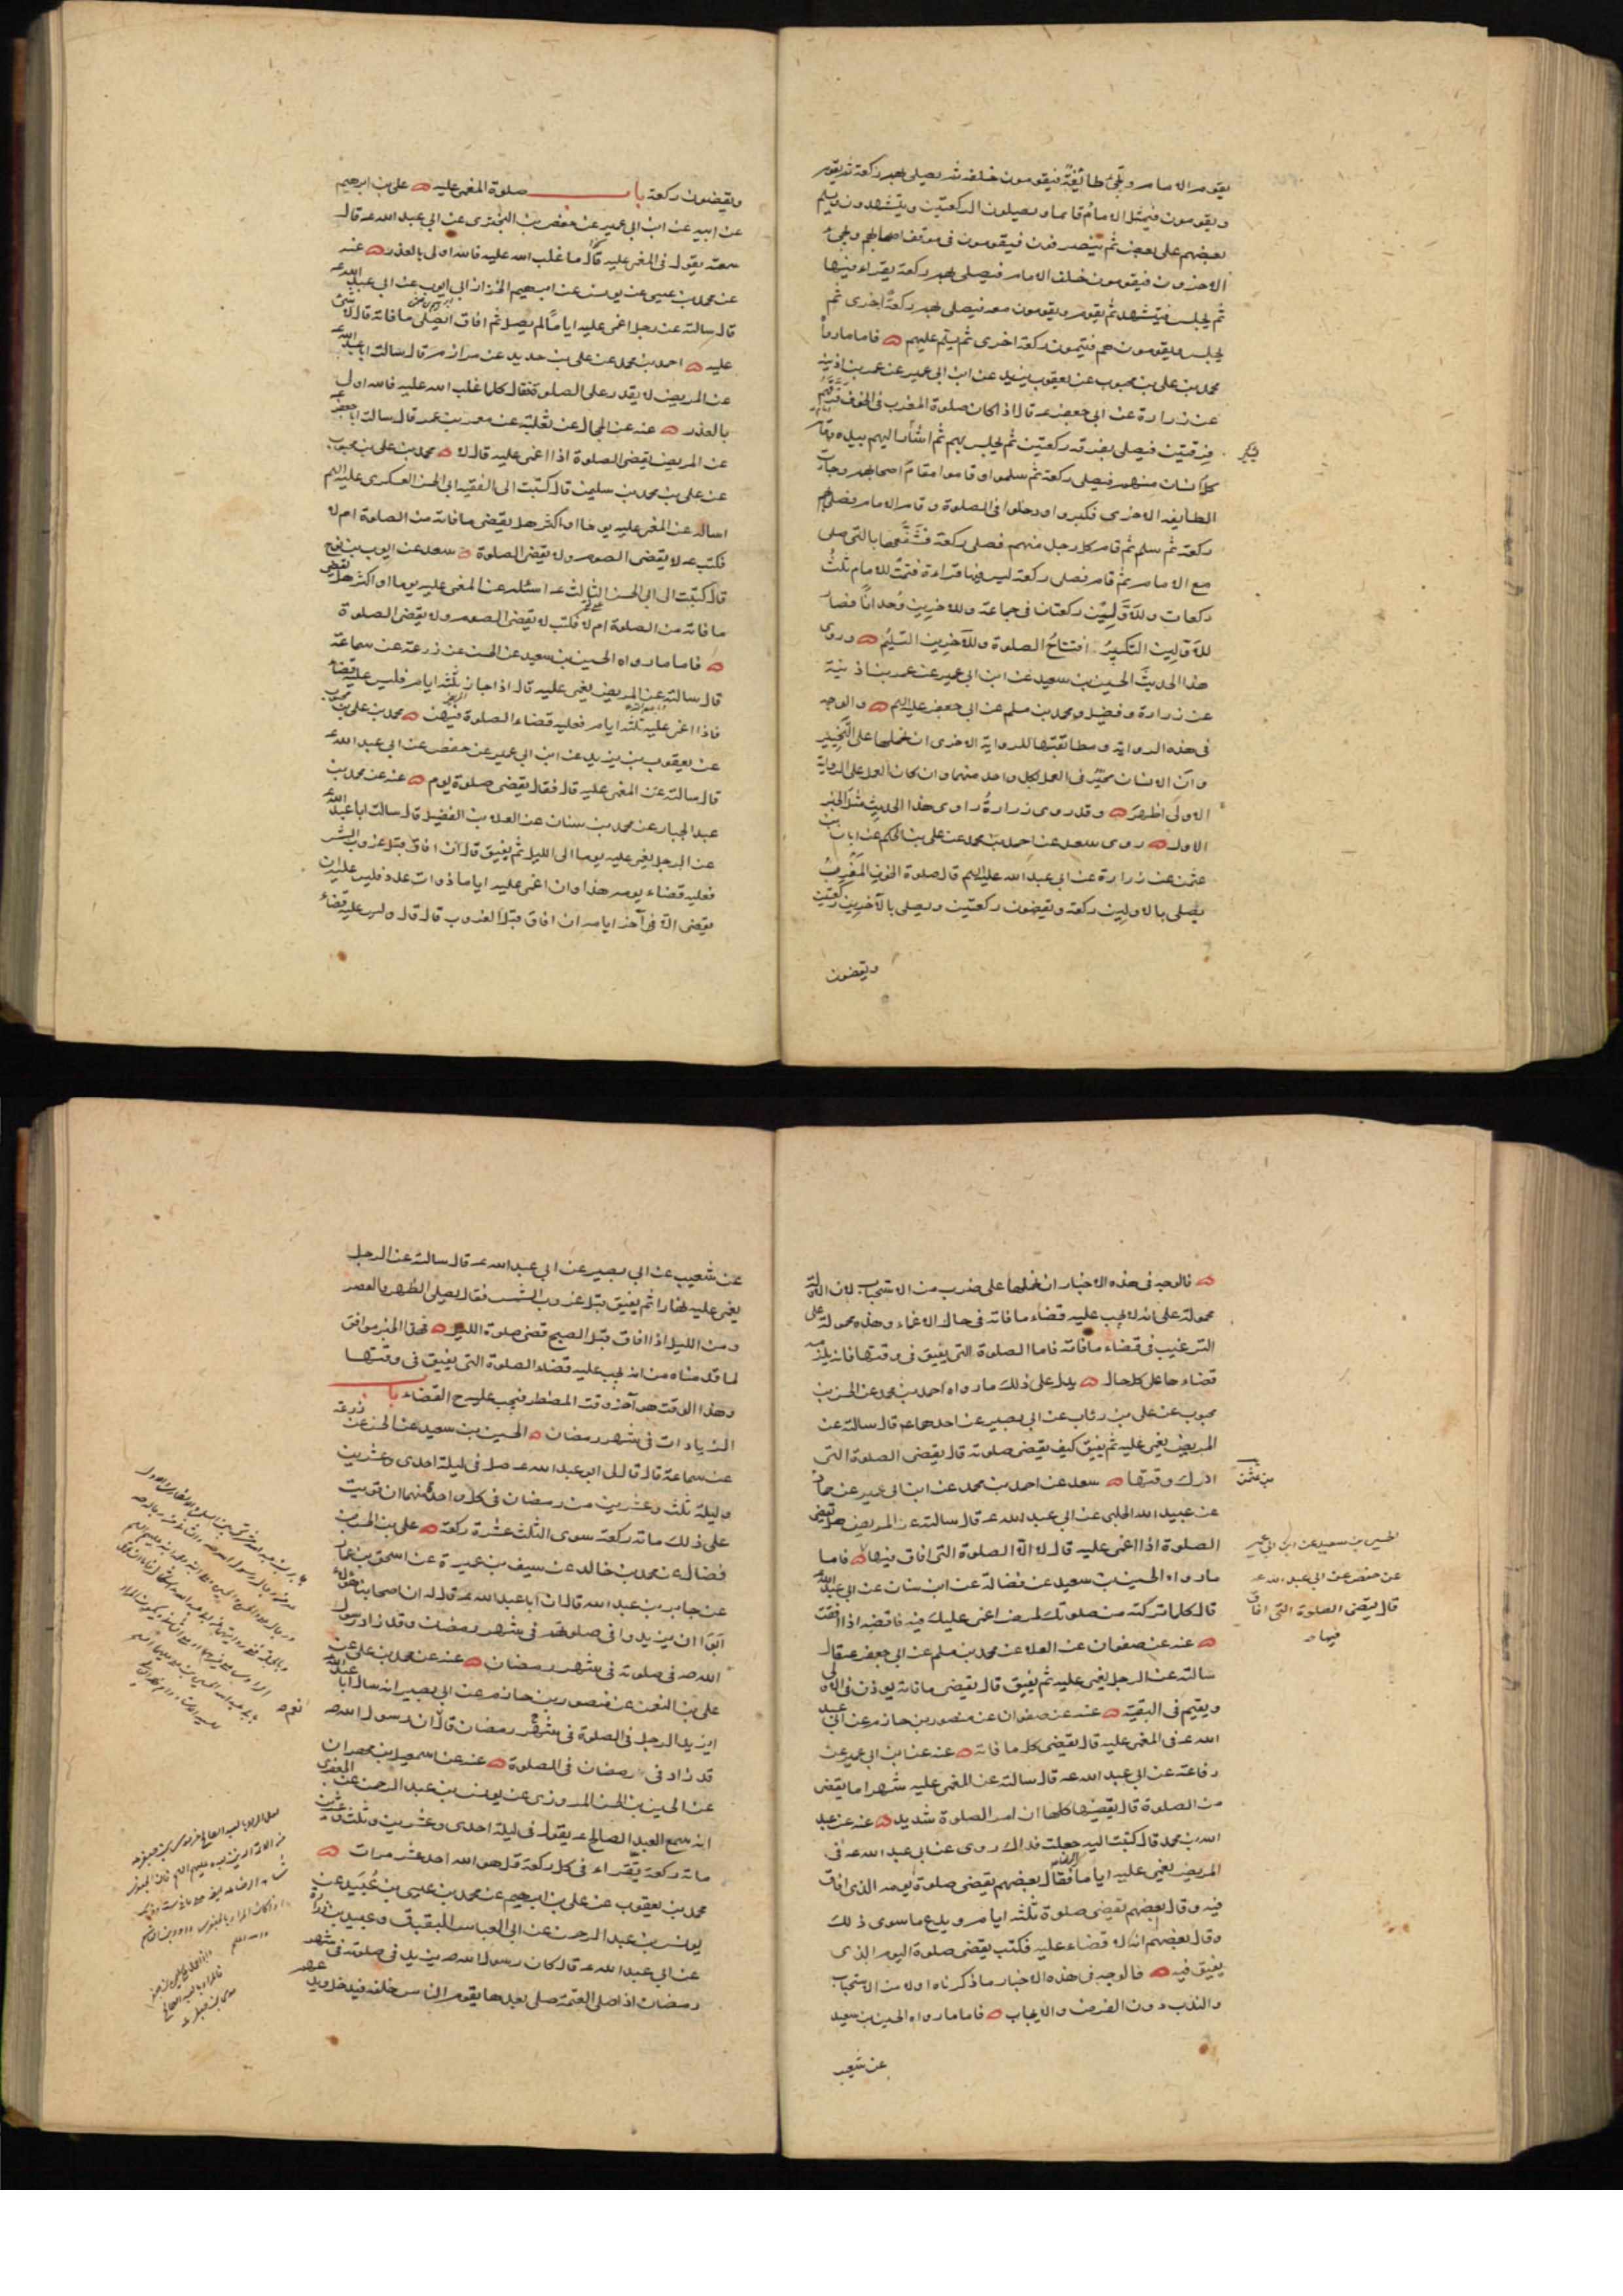 يقوم الامام وتجئ طائفة فيقومون خلفه ثم يصلى بهم ركعة ثم يقوم
ويقومون فيمثل الامام قائما ويصلون الركعتين ويتشهدون ويسلم
بعضهم على بعض ثم ينصرفون فيقومون فى موقف اصحابهم ويجئ
الاخرون فيقومون خلف الامام فيصلى بهم ركعة يقراء فيها
ثم يجلس فيتشهد ثم يقوم ويقومون معه فيصلى بهم ركعة اخرى ثم
يجلس ويقومون هم فيتمون ركعة اخرى ثم يسلم عليهم فاما ما رواه
محمد بن على بن محبوب عن يعقوب بن يزيد عن ابن ابى عمير عن عمر بن اذينة
عن زرارة عن ابى جعفر عه قال اذا كان صلوة المغرب فى الخوف فرقهم
فرقتين فيصلى بفرقة ركعتين ثم يجلس بهم ثم اشار اليهم بيده فقام
كل انسان منهم فيصلى ركعة ثم سلموا وقاموا مقام اصحابهم وجاءت
الطايفة الاخرى فكبروا ودخلوا فى الصلوة وقام الامام فصلى بهم
ركعة ثم سلم ثم قام كل رجل منهم فصلى ركعة فشفعها بالتى صلى
مع الامام ثم قام فصلى ركعة ليس فيها قراءة فتمت للامام ثلث
ركعات وللاولين ركعتان فى جماعة وللاخرين وحدانا فصار
للاولين التكبير وافتتاح الصلوة وللآخرين التسليم وروى
هذا الحديث الحسين بن سعيد عن ابن ابى عمير عن عمر بن اذينة
عن زرارة وفضيل ومحمد بن مسلم عن ابى جعفر عليه السلم والوجه
فى هذه الرواية ومطابقتها للرواية الاخرى ان نحملها على التخيير
وان الانسان مخير فى العمل بكل واحد منهما وان كان العمل على الرواية
الاولى اظهر وقد روى زرارة راوى هذا الحديث مثل الخبر
الاول روى سعد عن احمد بن محمد عن على بن الحكم عن ابان بن
عثمن عن زرارة عن ابى عبد الله عليه السلم قال صلوة الخوف المغرب
يصلى بالاولين ركعة ويقضون ركعتين ويصلى بالآخرين ركعتين
ويقضون
ويقضون ركعة باب صلوة المغمى عليه على بن ابرهيم
عن ابيه عن ابن ابى عمير عن حفص بن البخترى عن ابى عبد الله عه قال
سمعته يقول فى المغمى عليه قال ما غلب الله عليه فالله اولى بالعذر عنه
عن محمد بن عيسى عن يونس عن ابرهيم الخزاز ابى ايوب عن ابى عبد الله عه
قال سالته عن رجل اغمى عليه اياما لم يصل ثم افاق ايصلى ما فاته قال لا شئ
عليه احمد بن محمد عن على بن حديد عن مرازم قال سالت ابا عبد الله عه
عن المريض لا يقدر على الصلوة فقال كلما غلب الله عليه فالله اولى
بالعذر عنه عن الحجال عن ثعلبة عن معمر بن عمر قال سالت ابا جعفر عه
عن المريض يقضى الصلوة اذا اغمى عليه قال لا محمد بن على بن محبوب
عن على بن محمد بن سليمن قال كتبت الى الفقيه ابى الحسن العسكرى عليه السلم
اساله عن المغمى عليه يوما او اكثر هل يقضى ما فاته من الصلوة ام لا
فكتب عه لا يقضى الصوم ولا يقضى الصلوة سعد عن ايوب بن نوح
قال كتبت الى ابى الحسن الثالث عه اسئله عن المغمى عليه يوما او اكثر هل يقضى
ما فاته من الصلوة ام لا فكتب لا يقضى الصوم ولا يقضى الصلوة
فاما ما رواه الحسين بن سعيد عن الحسن عن زرعة عن سماعة
قال سالته عن المريض يغمى عليه قال اذا جاز ثلثة ايام فليس عليه قضاء
فاذا اغمى عليه ثلثة ايام فعليه قضاء الصلوة فيهن محمد بن على بن محبوب
عن يعقوب بن يزيد عن ابن ابى عمير عن حفص عن ابى عبد الله عه
قال سالته عن المغمى عليه قال فقال يقضى صلوة يوم عنه عن محمد بن
عبد الجبار عن محمد بن سنان عن العلا بن الفضيل قال سالت ابا عبد الله عه
عن الرجل يغمى عليه يوما الى الليل ثم يفيق قال ان افاق قبل غروب الشمس
فعليه قضاء يومه هذا وان اغمى عليه اياما ذوات عدد فليس عليه ان
يقضى الا فى آخر ايامه ان افاق قبل الغروب قال قال وليس عليه قضاء
فالوجه فى هذه الاخبار ان نحملها على ضرب من الاستحباب لان الاولة
محمولة على انه لا يجب عليه قضاء ما فاته فى حال الاغماء وهذه محمولة على
الترغيب فى قضاء ما فاته فاما الصلوة التى يفيق فى وقتها فانه يلزمه
قضاءها على كل حال يدل على ذلك ما رواه احمد بن محمد عن الحسن بن
محبوب عن على بن رئاب عن ابى بصير عن احدهما عه قال سالته عن
المريض يغمى عليه ثم يفيق كيف يقضى صلوته قال يقضى الصلوة التى
ادرك وقتها سعد عن احمد بن محمد عن ابن ابى عمير عن حماد
عن عبيد الله الحلبى عن ابى عبد الله عه قال سالته عن المريض هل يقضى
الصلوة اذا اغمى عليه قال لا الا الصلوة التى افاق فيها فاما
ما رواه الحسين بن سعيد عن فضالة عن ابن سنان عن ابى عبد الله عه
قال كلما تركته من صلوتك لمرض اغمى عليك فيه فاقضه اذا افقت
عنه عن صفوان عن العلا عن محمد بن مسلم عن ابى جعفر عه قال
سالته عن الرجل يغمى عليه ثم يفيق قال يقضى ما فاته يوذن فى الاولى
ويقيم فى البقية عنه عن صفوان عن منصور بن حازم عن ابى عبد
الله عه فى المغمى عليه قال يقضى كل ما فاته عنه عن ابن ابى عمير عن
رفاعة عن ابى عبد الله عه قال سالته عن المغمى عليه شهرا ما يقضى
من الصلوة قال يقضيها كلها ان امر الصلوة شديد عنه عن عبد
الله بن محمد قال كتبت اليه جعلت فداك روى عن ابى عبد الله عه فى
المريض يغمى عليه اياما فقال بعضهم يقضى صلوة يومه الذى افاق
فيه وقال بعضهم يقضى صلوة ثلثة ايام ويدع ما سوى ذلك
وقال بعضهم انه لا قضاء عليه فكتب يقضى صلوة اليوم الذى
يفيق فيه فالوجه فى هذه الاخبار ما ذكرناه اولا من الاستحباب
والندب دون الفرض والايجاب فاما ما رواه الحسين بن سعيد
عن شعيب
بن عثمن
الحسين بن سعيد عن ابن ابى عمير
عن حفص عن ابى عبد الله عه
قال يقضى الصلوة التى افاق
فيها
عن شعيب عن ابى بصير عن ابى عبد الله عه قال سالته عن الرجل
يغمى عليه نهارا ثم يفيق قبل غروب الشمس فقال يصلى الظهر والعصر
ومن الليل اذا افاق قبل الصبح قضى صلوة الليل فهذا الخبر موافق
لما قدمناه من انه يجب عليه قضاء الصلوة التى يفيق فى وقتها
وهذا الوقت هو آخر وقت المضطر فيجب عليه ح القضاء باب
الزيادات فى شهر رمضان الحسين بن سعيد عن الحسن عن زرعة
عن سماعة قال قال لى ابو عبد الله عه صل فى ليلة احدى وعشرين
وليلة ثلث وعشرين من رمضان فى كل واحدة منهما ان قويت
على ذلك مائة ركعة سوى الثلث عشرة ركعة على بن الحسن بن
فضال عن محمد بن خالد عن سيف بن عميرة عن اسحق بن عمار
عن جابر بن عبد الله قال ان ابا عبد الله عه قال له ان اصحابنا هؤلاء
ابوا ان يزيدوا فى صلوتهم فى شهر رمضان وقد زاد رسول
الله صه فى صلوته فى شهر رمضان عنه عن محمد بن على عن
على بن النعمن عن منصور بن حازم عن ابى بصير انه سال ابا عبد الله
ايزيد الرجل فى الصلوة فى شهر رمضان قال ان رسول الله صه
قد زاد فى رمضان فى الصلوة عنه عن اسمعيل بن مهران
عن الحسين بن الحسن المروزى عن يونس بن عبد الرحمن عن الجعفرى
انه سمع العبد الصالح عه يقول فى ليلة احدى وعشرين وثلث وعشرين
مائة ركعة يقراء فى كل ركعة قل هو الله احد عشر مرات
محمد بن يعقوب عن على بن ابرهيم عن محمد بن عيسى بن عبيد عن
يونس بن عبد الرحمن عن ابى العباس البقباق وعبيد بن زرارة
عن ابى عبد الله عه قال كان رسول الله صه يزيد فى صلوته فى شهر
رمضان اذا صلى العتمة صلى بعدها يقوم الناس خلفه فيدخل ويدعهم